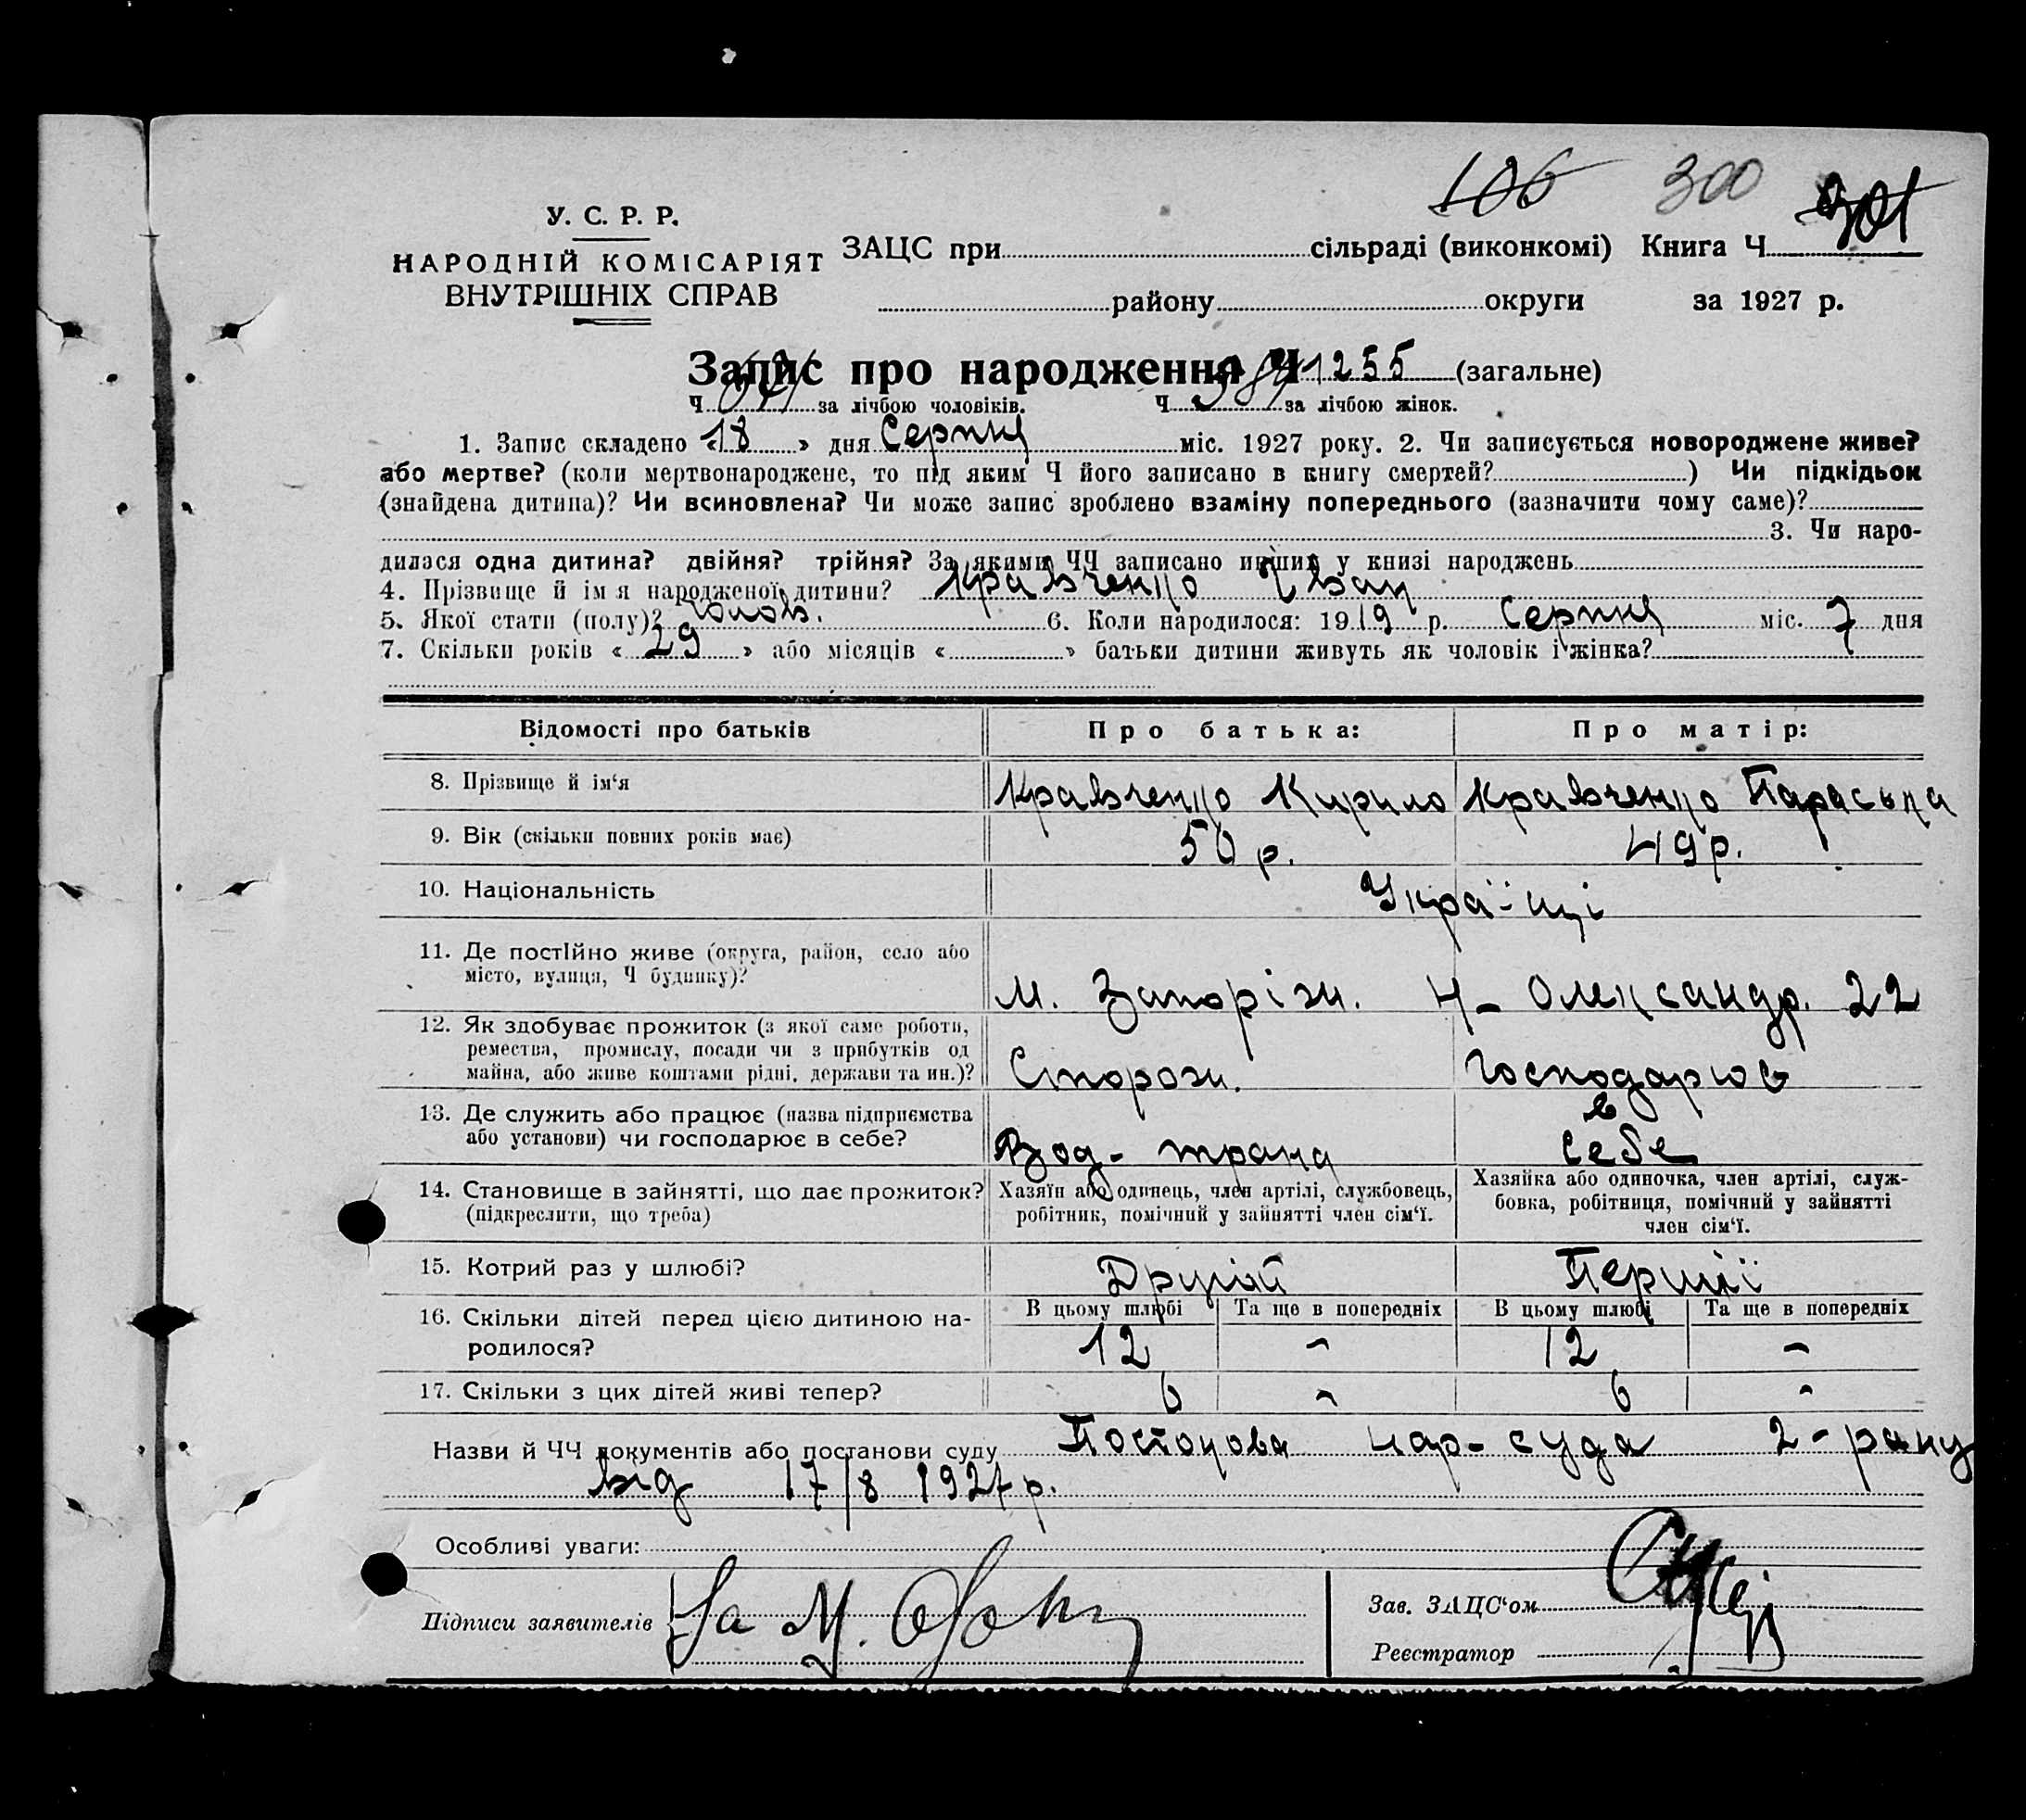 106 300 301
У. С. Р. Р.
НАРОДНІЙ КОМІСАРІЯТ
ВНУТРІШНІХ СПРАВ
ЗАЦС при сільраді (виконкомі) Книга Ч
району округи за 1927 р.
Запис про народження Ч 1255 (загальне)
Ч за лічбою чоловіків. Ч за лічбою жінок.
1. Запис складено «18» дня Серпня міс. 1927 року. 2. Чи записується новороджене живе?
або мертве? (коли мертвонароджене, то під яким Ч його записано в книгу смертей? ) Чи підкідьок
(знайдена дитина)? Чи всиновлена? Чи може запис зроблено взаміну попереднього (зазначити чому саме)?
3. Чи наро-
дилася одна дитина? двійня? трійня? За якими ЧЧ записано инших у книзі народжень
4. Прізвище й ім я народженої дитини? Кравченко Іван
5. Якої стати (полу)? чолов. 6. Коли народилося: 1919 р. Серпня міс. 7 дня
7. Скільки років «29» або місяців « » батьки дитини живуть як чоловік і жінка?
Відомості про батьків Про батька: Про матір:
8. Прізвище й ім‘я Кравченко Кирило Кравченко Параська
9. Вік (скільки повних років має) 50 р. 49 р.
10. Національність Україйці
11. Де постійно живе (округа, район, село або
місто, вулиця, Ч будинку)? м. Запоріж. Н-Олександр. 22
12. Як здобуває прожиток (з якої саме роботи,
ремества, промислу, посади чи з прибутків од
майна, або живе коштами рідні, держави та ин.)? Сторож. Господарює
13. Де служить або працює (назва підприємства
або установи) чи господарює в себе? Вод-транц в себе
14. Становище в зайнятті, що дає прожиток?
(підкреслити, що треба)
Хазяїн або одинець, член артілі, службовець,
робітник, помічний у зайнятті член сім‘ї.
Хазяйка або одиночка, член артілі, служ-
бовка, робітниця, помічний у зайнятті
член сім‘ї.
15. Котрий раз у шлюбі? Другій Першії
16. Скільки дітей перед цією дитиною на-
родилося?
В цьому шлюбі Та ще в попередніх В цьому шлюбі Та ще в попередніх
12 - 12 -
17. Скільки з цих дітей живі тепер? 6 - 6 -
Назви й ЧЧ документів або постанови суду Постонова нар-суда 2-рану
від 17/8 1927 р.
Особливі уваги:
Підписи заявителів За М.
Зав. ЗАЦС‘ом
Реєстратор